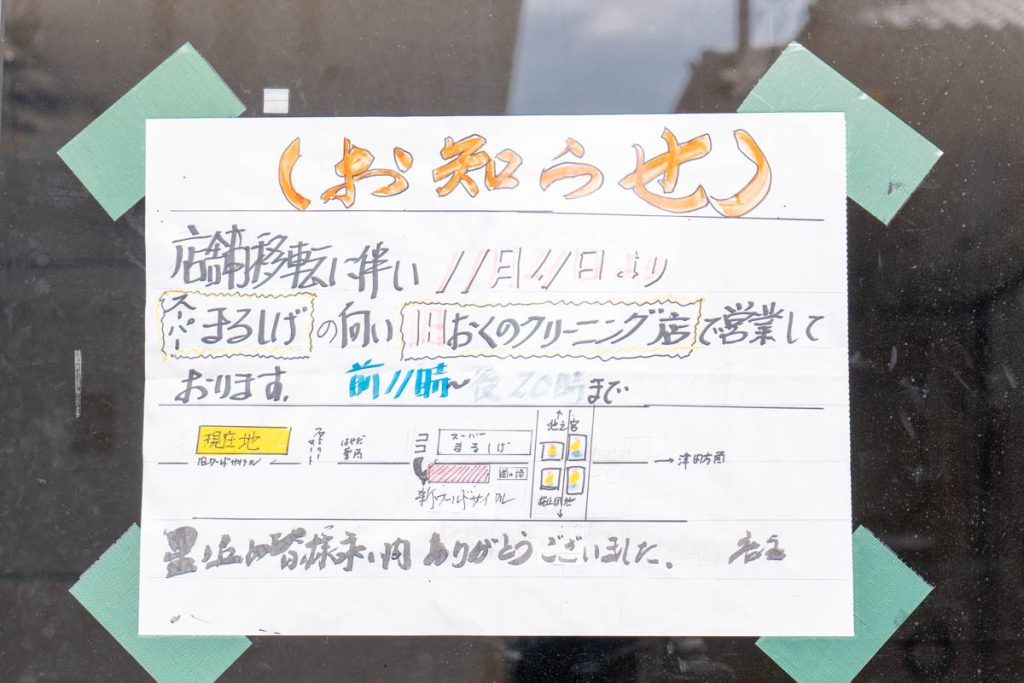 (お知らせ)
店舗移転に伴い 11月21日より
スーパーまるしげの向い 旧おくのクリーニング店で営業して
おります。 前11時〜後20時まで
現在地
旧ワールドサイクル
ファミリーマート
はせだ薬局
ココ
スーパー
まるしげ
新ワールドサイクル
池之宮
→津田方面
皆様 ありがとうございました。 店主